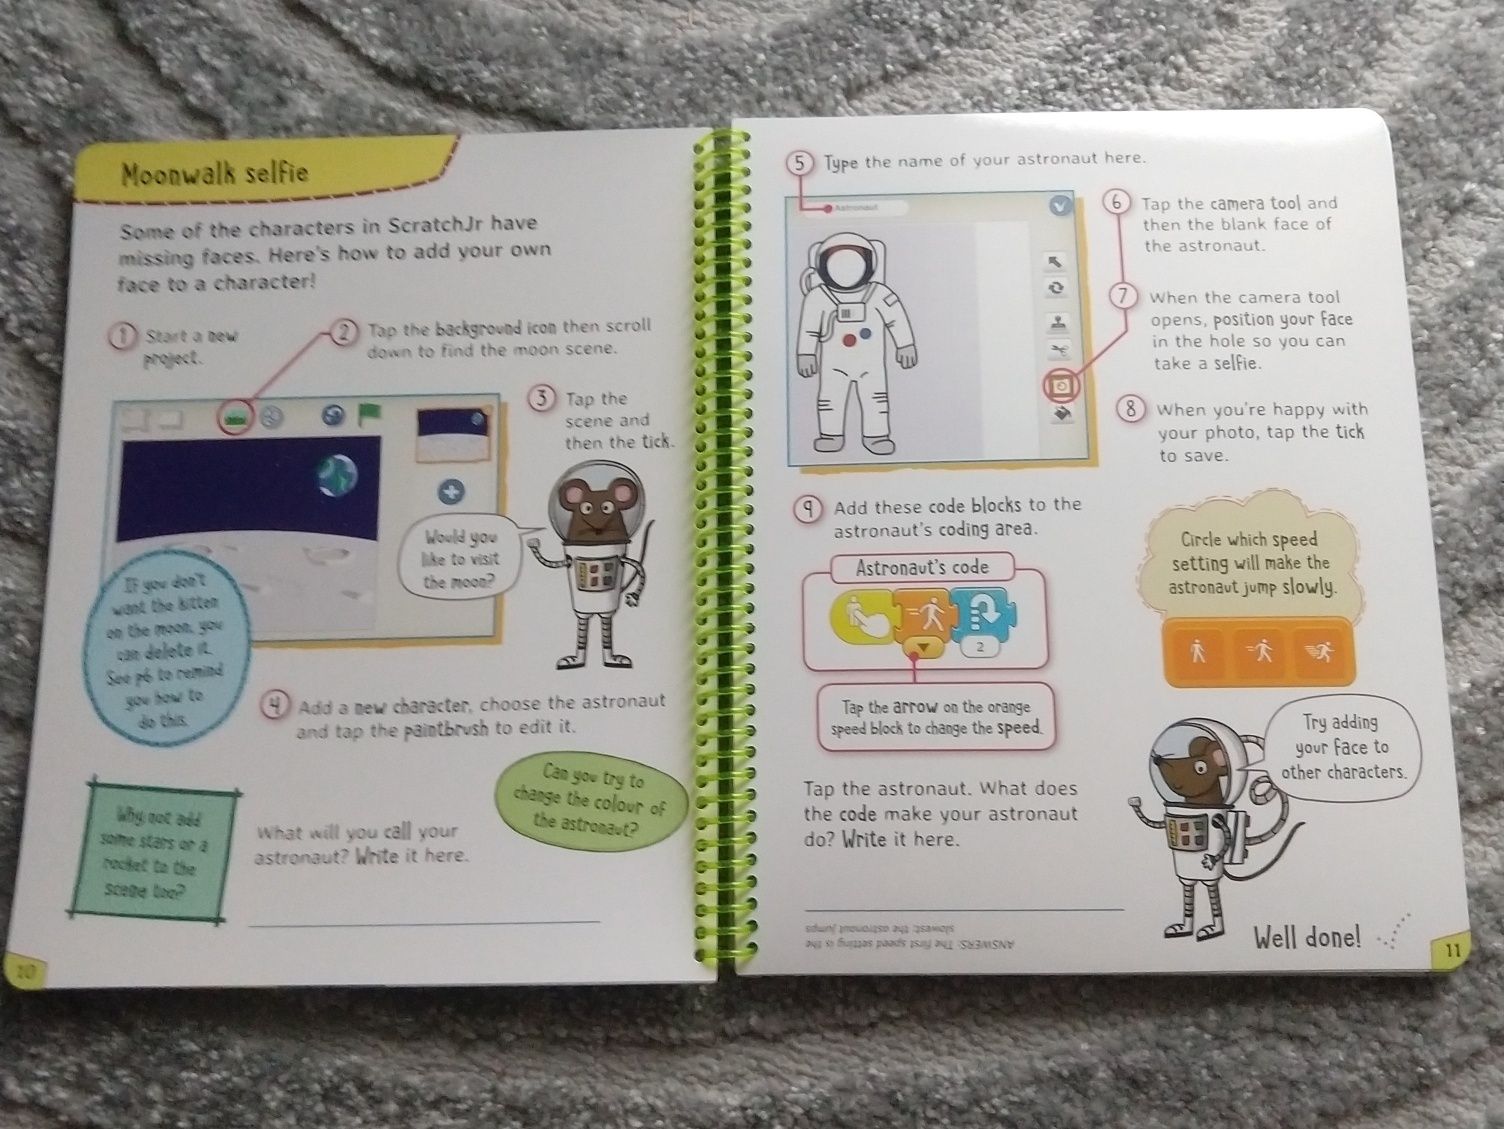 Moonwalk selfie
Some of the characters in ScratchJr have
missing faces. Here's how to add your own
face to a character!
1 Start a new
project.
2 Tap the background icon then scroll
down to find the moon scene.
3 Tap the
scene and
then the tick.
Would you
like to visit
the moon?
If you don't
want the kitten
on the moon, you
can delete it.
See p6 to remind
you how to
do this.
4 Add a new character, choose the astronaut
and tap the paintbrush to edit it.
Can you try to
change the colour of
the astronaut?
Why not add
some stars or a
rocket to the
scene too?
What will you call your
astronaut? Write it here.
10
5 Type the name of your astronaut here.
Astronaut
6 Tap the camera tool and
then the blank face of
the astronaut.
7 When the camera tool
opens, position your face
in the hole so you can
take a selfie.
8 When you're happy with
your photo, tap the tick
to save.
9 Add these code blocks to the
astronaut's coding area.
Astronaut's code
2
Tap the arrow on the orange
speed block to change the speed.
Circle which speed
setting will make the
astronaut jump slowly.
Try adding
your face to
other characters.
Tap the astronaut. What does
the code make your astronaut
do? Write it here.
ANSWERS: The first speed setting is the
slowest; the astronaut jumps
Well done!
11